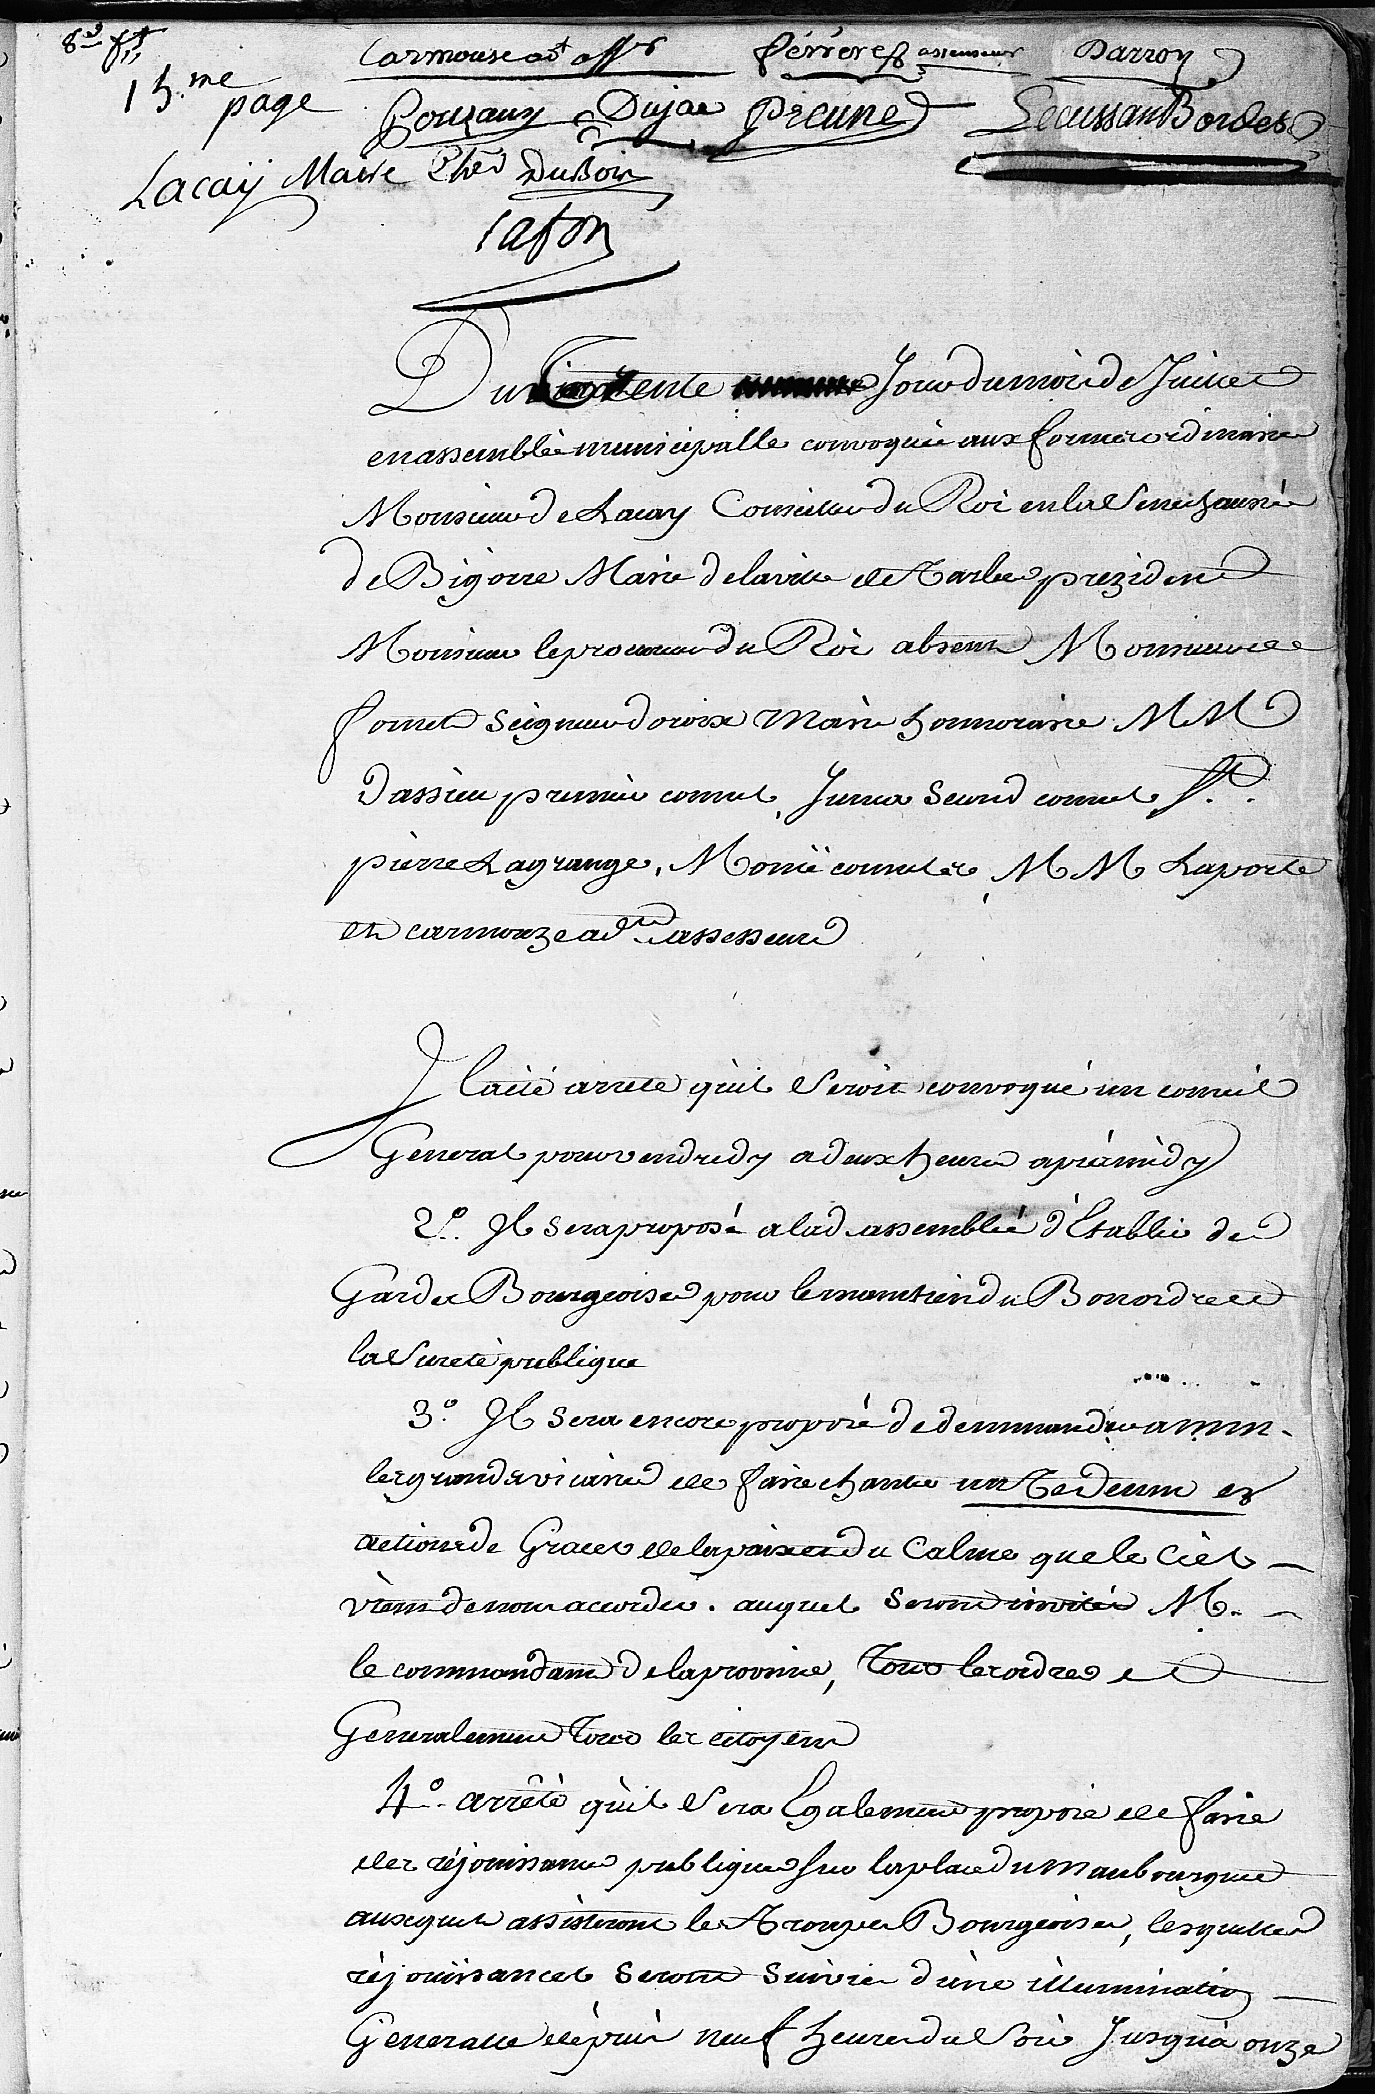 15.me
page
Carmouse adt assr ferrere assesseur Darroy
Gouzaux Dujac Preune Lecussan Bordes
Lacay Maire Cher DuBois
lafon
Du trente Jour du mois de Juillet
en assemblée municipalle convoquée aux formes ordinaires
Monsieur de Lacay Conseiller du Roi en la Senechaussée
de Bigorre Maire de la ville de Tarbes prezident
Monsieur le procureur du Roi absent Monsieur de
fornets Seigneur doroix Maire honnoraire MM
Dassieu premier consul, Junca Second consul, St.
pierre Lagrange, Monié consuls, MM Laporte
et carmouze adt. assesseurs
Il a été arreté quil Seroit convoqué un conseil
General pour vendredy a deux heures après midy
2.° Il Sera proposé a lad. assemblée d'Etablir des
Gardes Bourgeoises pour le maintien du Bon ordre et
la Sureté publique
3.° Il Sera encore proposé de demmander a mm.
les grands vicaires de faire chanter un Te deum en
actions de Graces de la paix et du Calme que le Ciel
vient de nous accorder. auquel Seront invités M.
le commandant de la province, Tous les ordres et
Generalement Tous les citoyens
4.° arrêté qu'il Sera Egalement proposé de faire
des réjouissances publiques sur la place du maubourguet
auxquels assisteront les Troupes Bourgeoises, lesquelles
réjouissances Seront Suivies d'une illumination
Generalle depuis neuf heures du Soir Jusqu'à onze